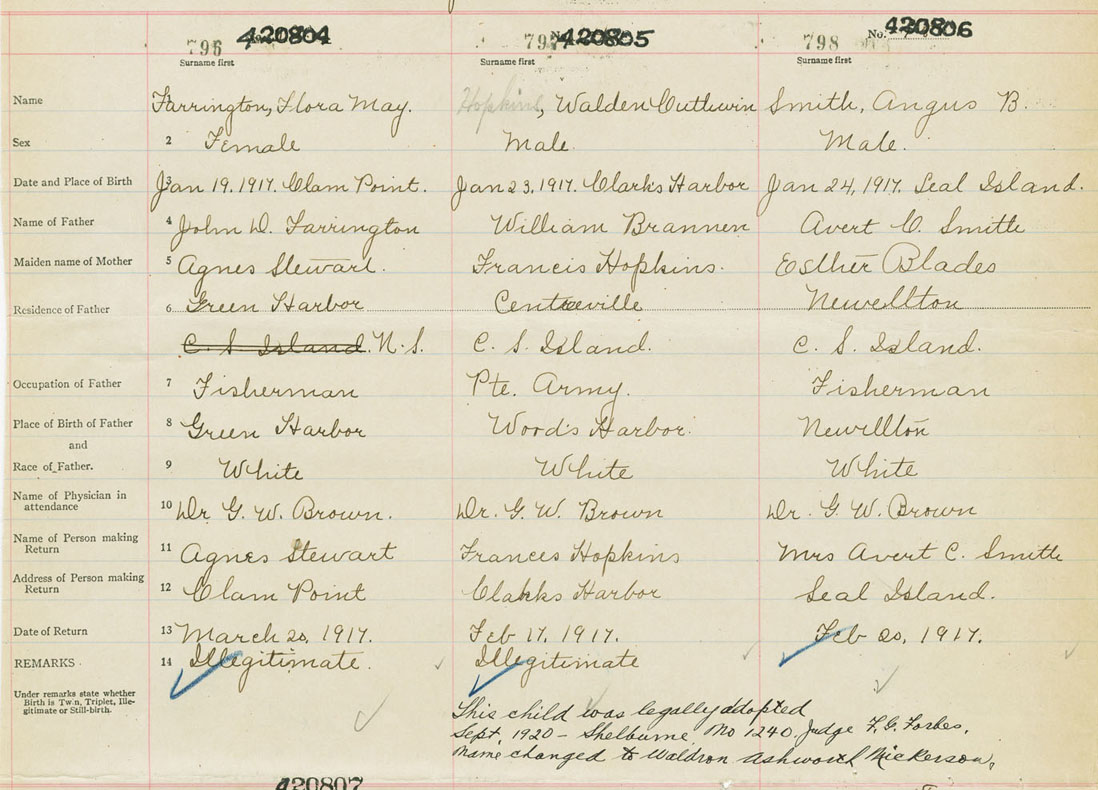 796 420804 797 No. 420805 798 No. 420806
Surname first Surname first Surname first
Name Farrington, Flora May. Hopkins, Walden Smith, Angus B.
Sex 2 Female Male. Male.
Date and Place of Birth 3 Jan 19. 1917. Clam Point. Jan 23, 1917. Clarks Harbor Jan 24, 1917. Seal Island.
Name of Father 4 John D. Farrington William Brannen Avert C. Smith
Maiden name of Mother 5 Agnes Stewart. Francis Hopkins. Esther Blades
Residence of Father 6 Green Harbor Centreville Newellton
C. S. Island. N. S. C. S. Island. C. S. Island.
Occupation of Father 7 Fisherman Pte. Army. Fisherman
Place of Birth of Father 8 Green Harbor Wood's Harbor. Newellton
and
Race of Father. 9 White White White
Name of Physician in
attendance 10 Dr G. W. Brown. Dr. G. W. Brown Dr. G. W. Brown
Name of Person making
Return 11 Agnes Stewart Frances Hopkins Mrs Avert C. Smith
Address of Person making
Return 12 Clam Point Clarks Harbor Seal Island.
Date of Return 13 March 20, 1917. Feb 17, 1917. Feb 20, 1917.
REMARKS 14 Illegitimate. Illegitimate
Under remarks state whether
Birth is Twin, Triplet, Ille-
gitimate or Still-birth.
This child was legally adopted
Sept. 1920 - Shelburne, No 1240. Judge F. G. Forbes.
Name changed to Waldron Ashworth Nickerson.
420807